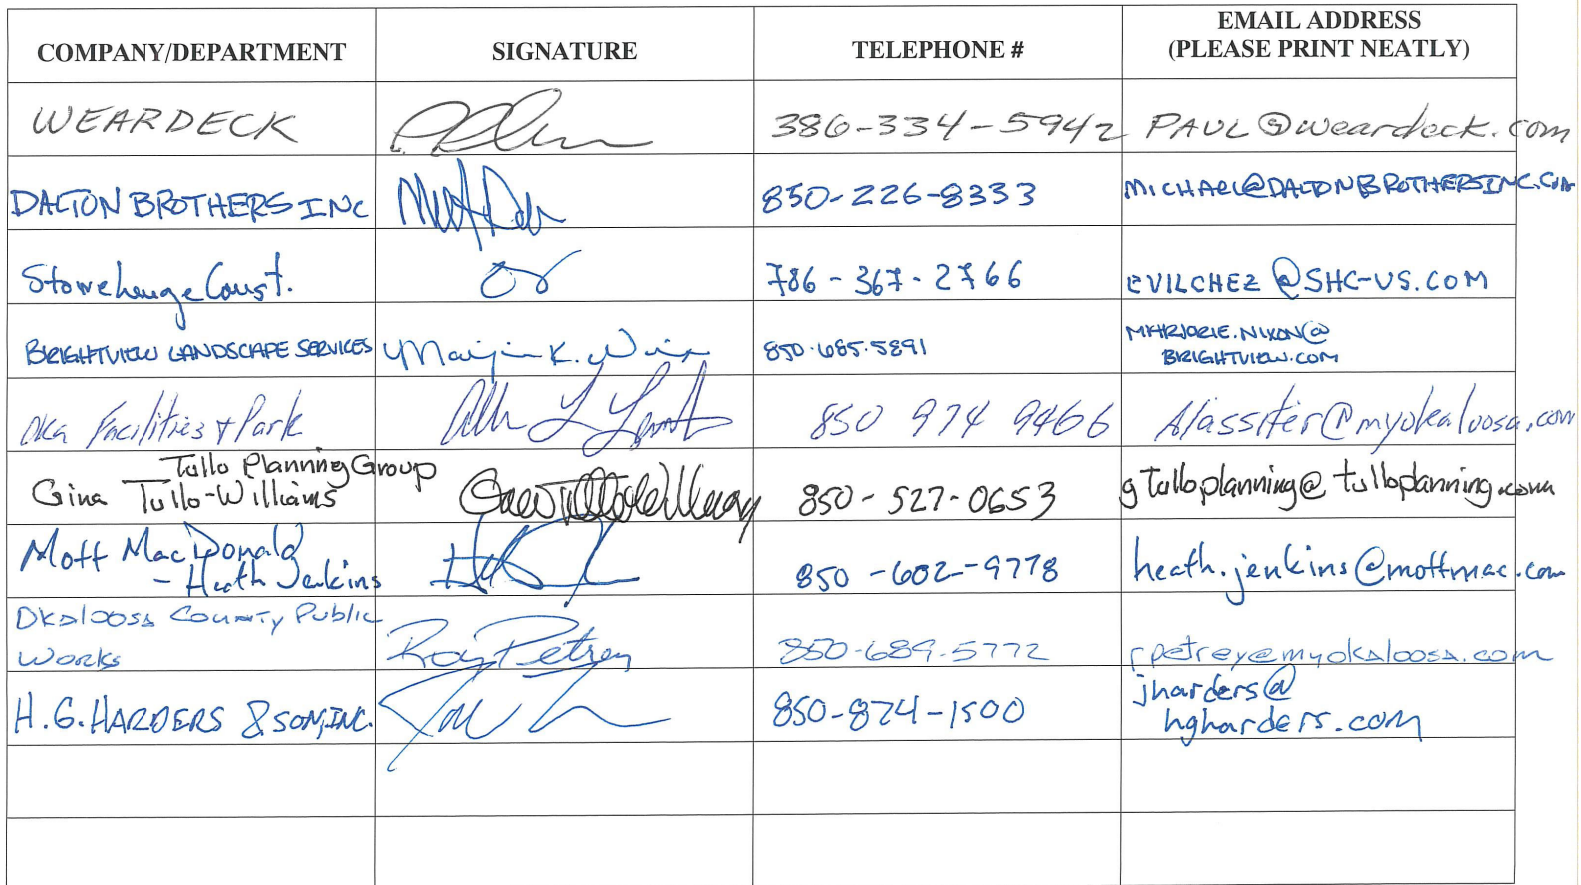 COMPANY/DEPARTMENT
SIGNATURE
TELEPHONE #
EMAIL ADDRESS
(PLEASE PRINT NEATLY)
WEARDECK
386-334-5942
PAUL@weardeck.com
DALTON BROTHERS INC
850-226-8333
MICHAEL@DALTONBROTHERSINC.COM
Stonehenge Const.
786-367-2766
EVILCHEZ@SHC-US.COM
BRIGHTVIEW LANDSCAPE SERVICES
Marjorie K. Nixon
850.685.5891
MARJORIE.NIXON@
BRIGHTVIEW.COM
Oka Facilities + Park
850 974 9466
@myokaloosa.com
Tullo Planning Group
Gina Tullo-Williams
850-527-0653
gtulloplanning@tulloplanning.com
Mott MacDonald
- Heath Jenkins
850-602-9778
heath.jenkins@mottmac.com
Okaloosa County Public
Works
Roy Petrey
850-689-5772
rpetrey@myokaloosa.com
H.G. HARDERS & SON, INC.
850-874-1500
jharders@
hgharders.com